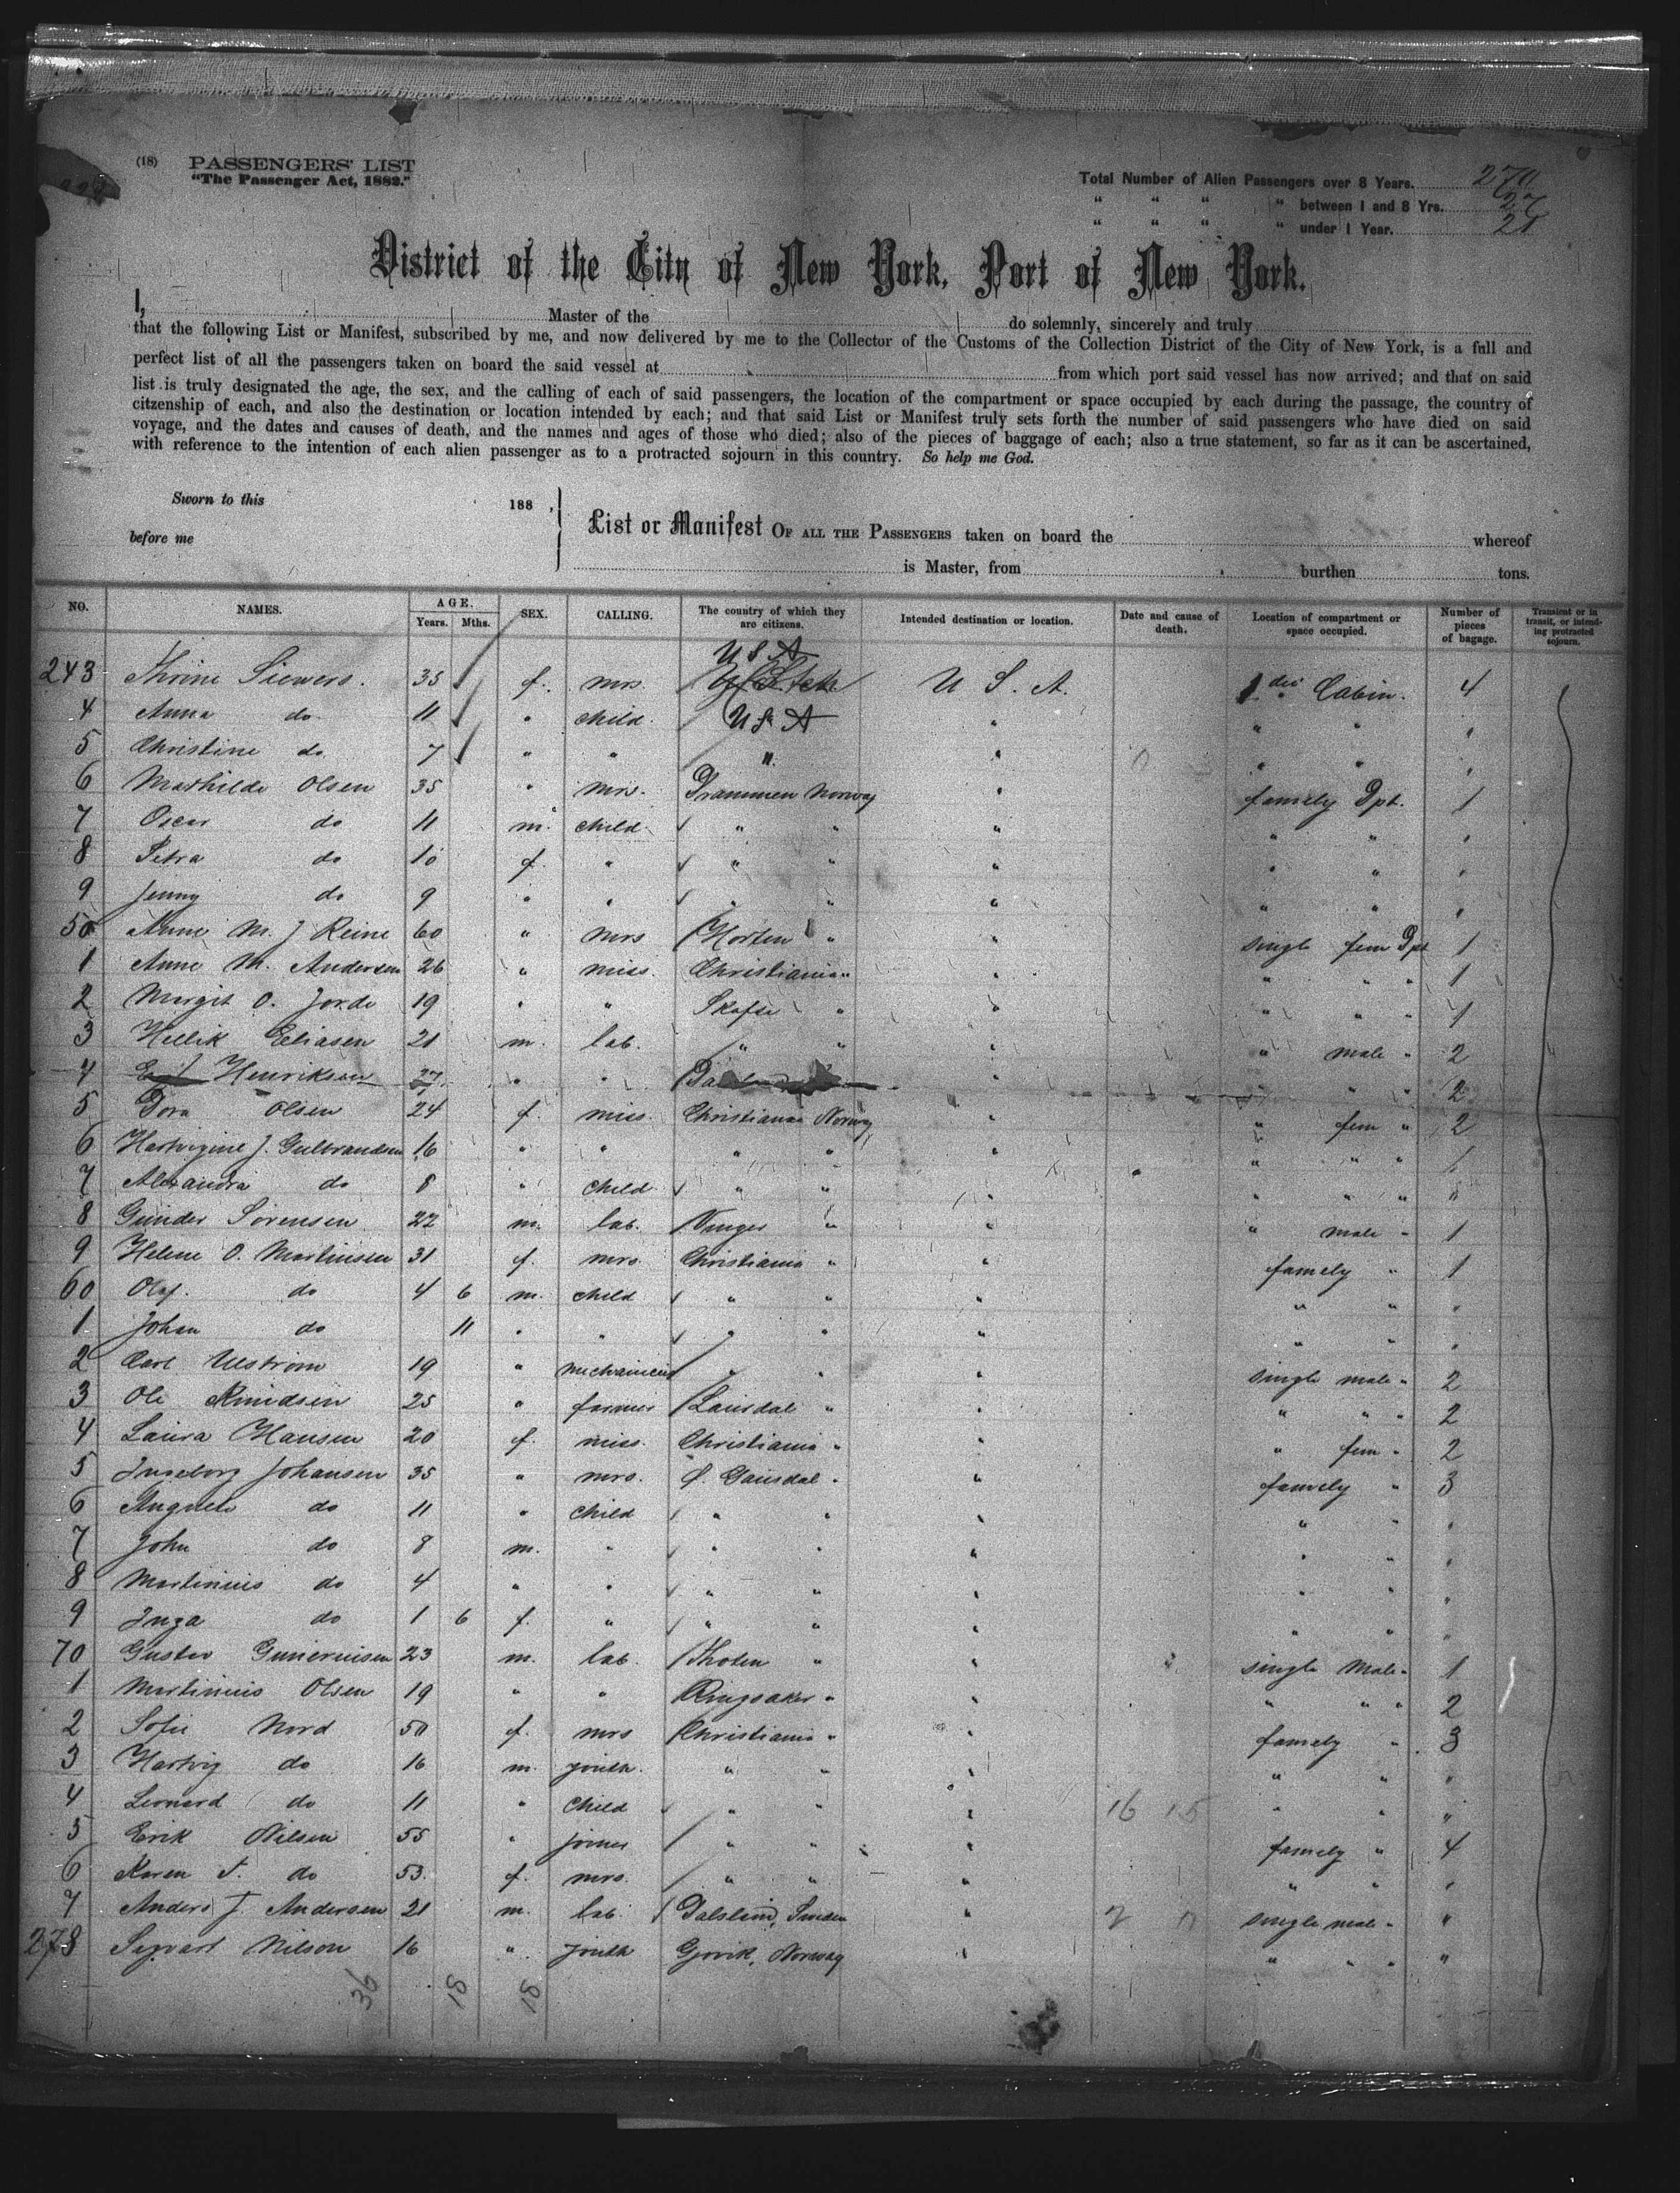 (18) PASSENGERS' LIST
"The Passenger Act, 1882."
Total Number of Alien Passengers over 8 Years. 270
" " " " between 1 and 8 Yrs. 27
" " " " under 1 Year. 21
District of the City of New York, Port of New York.
I, Master of the do solemnly, sincerely and truly
that the following List or Manifest, subscribed by me, and now delivered by me to the Collector of the Customs of the Collection District of the City of New York, is a full and
perfect list of all the passengers taken on board the said vessel at from which port said vessel has now arrived; and that on said
list is truly designated the age, the sex, and the calling of each of said passengers, the location of the compartment or space occupied by each during the passage, the country of
citzenship of each, and also the destination or location intended by each; and that said List or Manifest truly sets forth the number of said passengers who have died on said
voyage, and the dates and causes of death, and the names and ages of those who died; also of the pieces of baggage of each; also a true statement, so far as it can be ascertained,
with reference to the intention of each alien passenger as to a protracted sojourn in this country. So help me God.
Sworn to this 188 ,
before me
List or Manifest OF ALL THE PASSENGERS taken on board the whereof
is Master, from burthen tons.
NO. NAMES. AGE. Years. Mths. SEX. CALLING. The country of which they are citizens. Intended destination or location. Date and cause of death. Location of compartment or space occupied. Number of pieces of bagage. Transient or in transit, or intending protracted sojourn.
U S A
243 Thrine Siewers. 35 f. mrs. U. S. A. Cabin. 4
4 Anna do 11 " child. U S A " " " "
5 Christine do 7 " " " " " " "
6 Mathilde Olsen 35 " mrs. Drammen Norway " famely Dpt. 1
7 Oscar do 11 m. child " " " " " "
8 Petra do 10 f. " " " " " " "
9 Jenny do 9 " " " " " " " "
50 Anne M. J Reine 60 " mrs Horten " " single fem Dpt 1
1 Anne M. Andersen 26 " miss. Christiania " " " " " 1
2 Margit O. Jorde 19 " " " " " " " 1
3 Hellik Eliasen 21 m. lab. " " " " male " 2
4 Henriksen 27 " " " " " " 2
5 Dora Olsen 24 f. miss. Christiania Norway " " fem " 2
6 Hartvigine J. Gulbrandsen 16 " " " " " " " " 1
7 Alexandra do 8 " child " " " " " " "
8 Gunder Sørensen 22 m. lab. Vinger " " " male " 1
9 Helene O. Martinsen 31 f. mrs. Christiania " " famely " 1
60 Olaf. do 4 6 m. child " " " " " "
1 Johan do 11 " " " " " " " "
2 Carl Ulstrom 19 " " " " single male " 2
3 Ole Knudsen 25 " farmer " " " " " 2
4 Laura Hansen 20 f. miss. Christiania " " " fem " 2
5 Ingeborg Johansen 35 " mrs. Gausdal " " famely " 3
6 do 11 " child " " " " " "
7 John do 8 m. " " " " " " "
8 Martinius do 4 " " " " " " " "
9 Inga do 1 6 f. " " " " " " "
70 Gustav 23 m. lab. Thoten " " single Male " 1
1 Martinius Olsen 19 " " Ringsaker " " " " " 2
2 Sofie Nord 50 f. mrs Christiania " " famely " 3
3 Hartvig do 16 m. youth. " " " " " "
4 Leonard do 11 " child " " " 16 15 " " "
5 Erik Nilsen 55 " joiner " " " famely " 4
6 Karen do 53. f. mrs. " " " " " "
7 Anders J. Andersen 21 m. lab. Dalsland, Sweden " single male " "
278 Sigvart Nilson 16 " youth Gjovik, Norway " " " " "
36 18 18